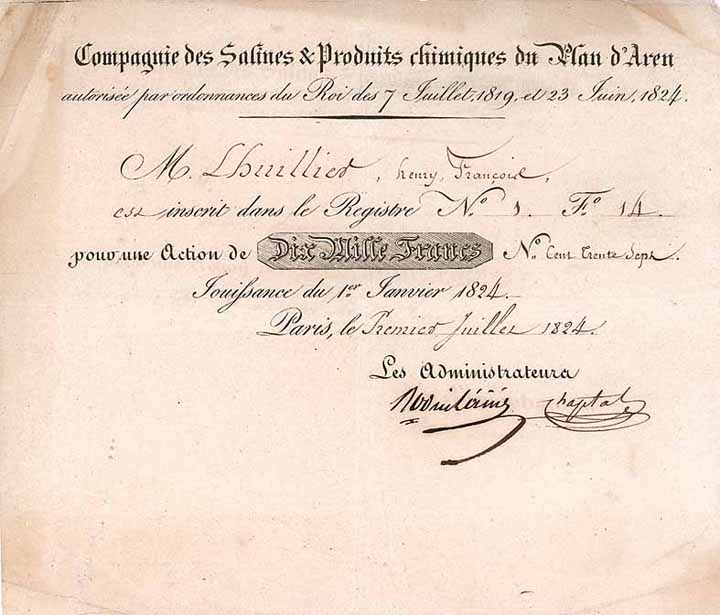 Compagnie des Salines & Produits chimiques du Plan d'Aren
autorisée par ordonnances du Roi des 7 Juillet, 1819, et 23 Juin, 1824.
M. Lhuillier, henry, François,
est inscrit dans le Registre N.º 1. F.º 14
pour une Action de Dix Mille Francs N.º Cent Trente Sept.
Jouissance du 1.er Janvier 1824.
Paris, le Premier Juillet 1824.
Les Administrateurs
Chaptal